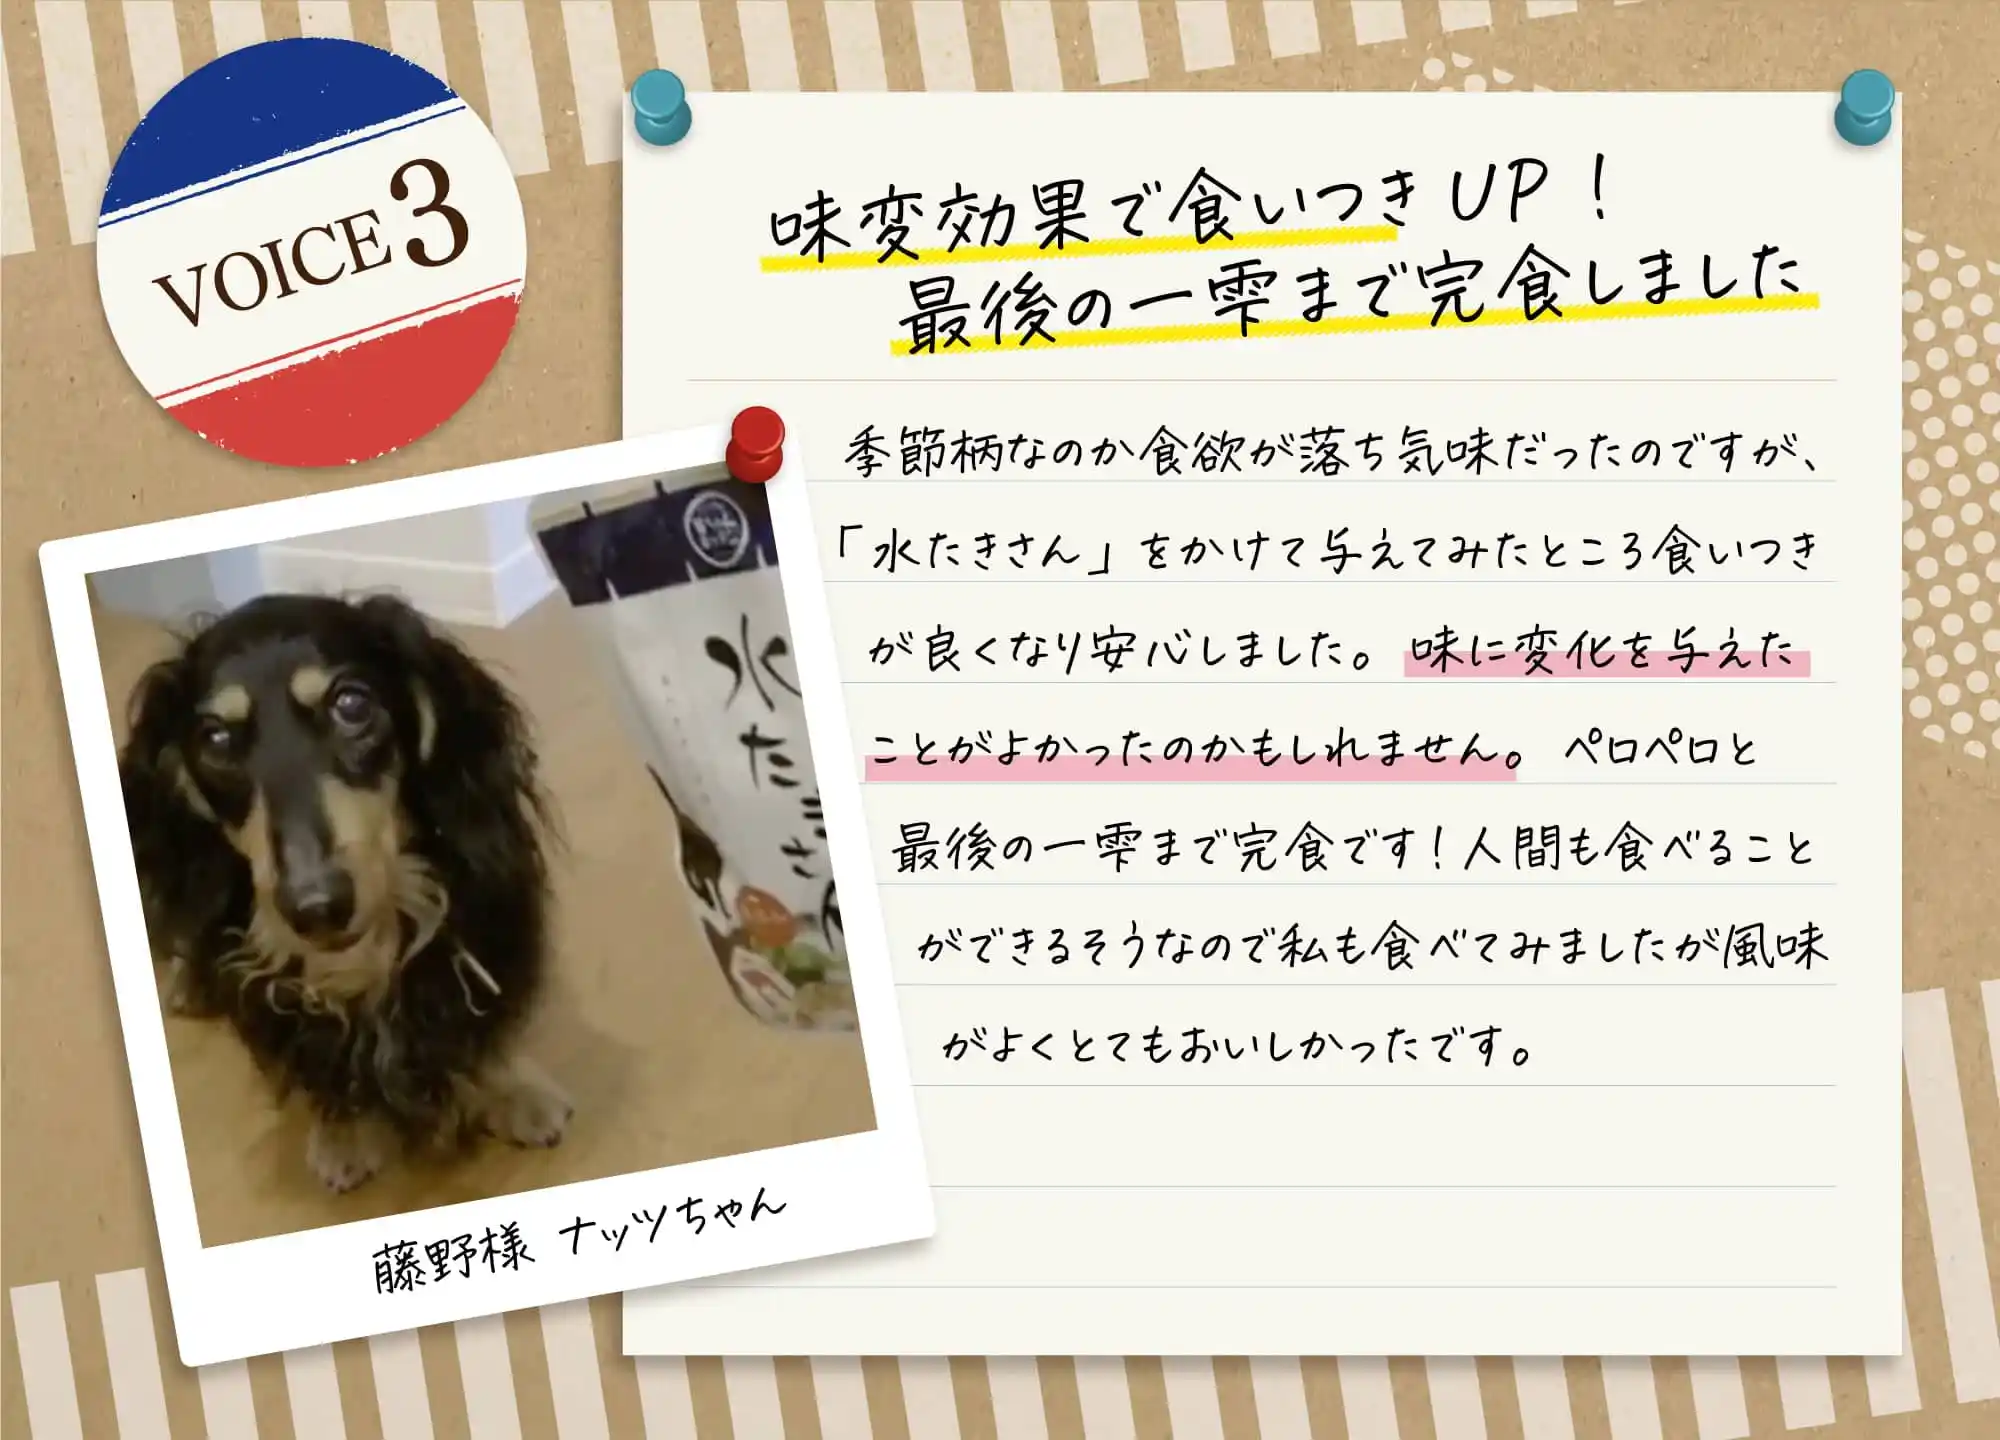 VOICE3
味変効果で食いつきUP！
最後の一雫まで完食しました
季節柄なのか食欲が落ち気味だったのですが、
「水たきさん」をかけて与えてみたところ食いつき
が良くなり安心しました。味に変化を与えた
ことがよかったのかもしれません。ペロペロと
最後の一雫まで完食です！人間も食べること
ができるそうなので私も食べてみましたが風味
がよくとてもおいしかったです。
水たきさん
藤野様 ナッツちゃん